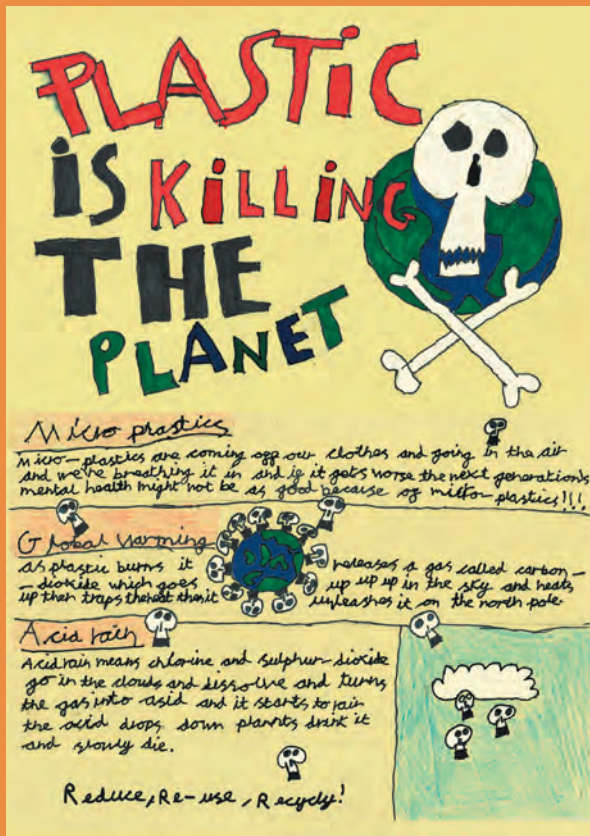 PLASTIC
IS KILLING
THE
PLANET
Micro plastics
Micro-plastics are coming off our clothes and going in the air
and we're breathing it in and if it gets worse the next generations
mental health might not be as good because of micro-plastics!!!
Global Warming
as plastic burns it releases a gas called carbon-
-dioxide which goes up up up in the sky and heats
up then traps the heat then it unleashes it on the north pole
Acid rain
Acid rain means chlorine and sulphur-dioxide
go in the clouds and dissolve and turns
the gas into asid and it starts to rain
the acid drops down plannts drink it
and slowly die.
Reduce, Re-use, Recycly!